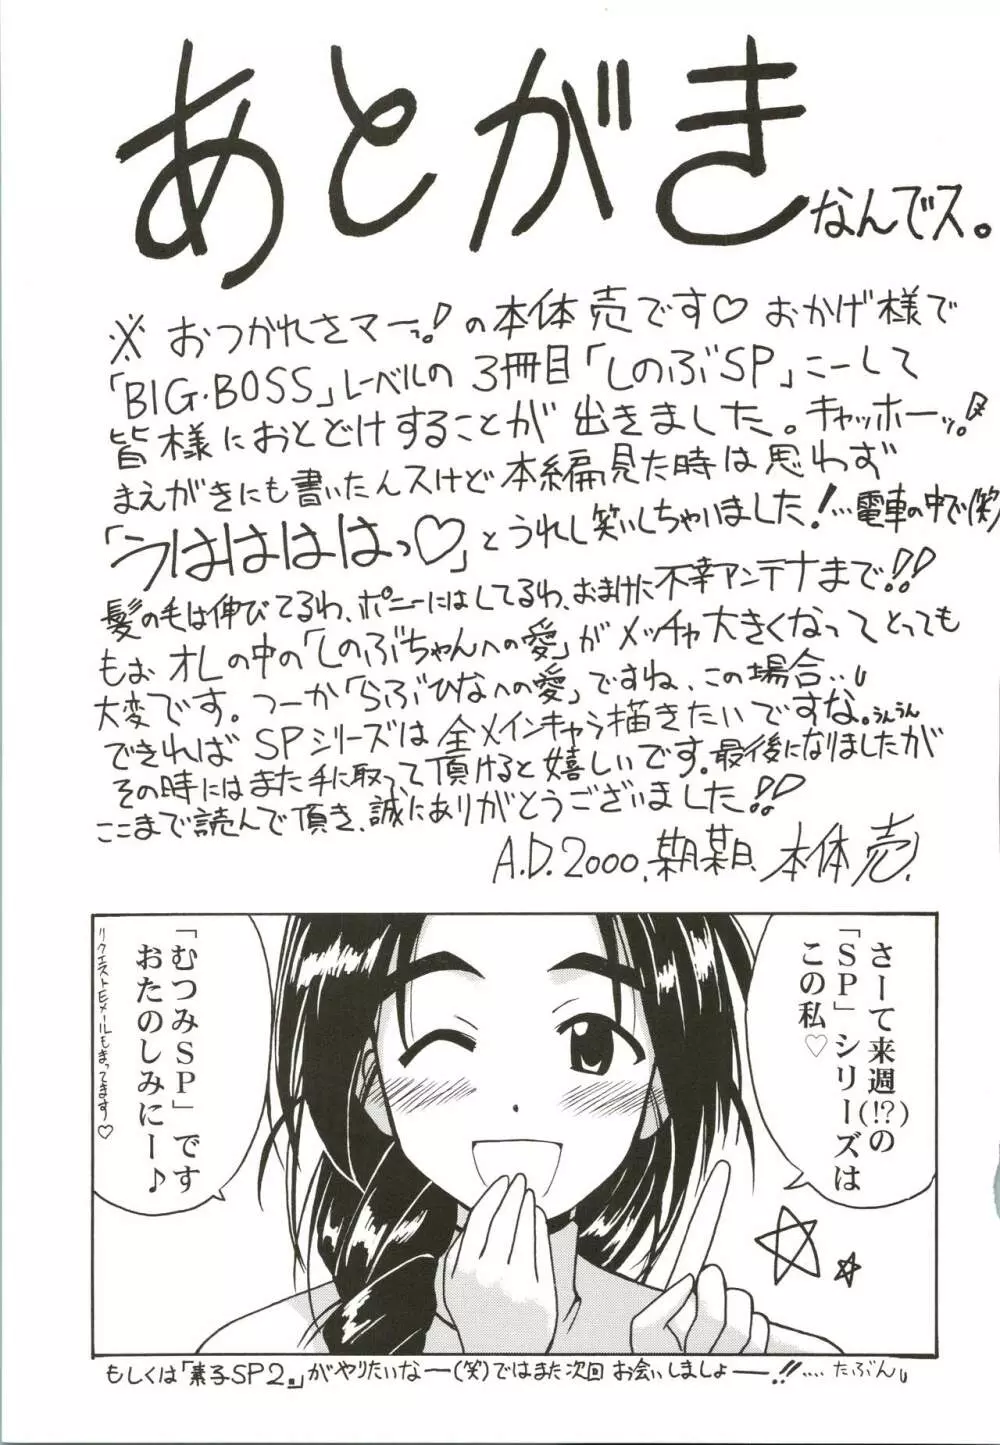 あとがき なんでス。
※おつかれさマーっ!の本体売です♡おかげ様で
「BIG・BOSS」レーベルの3冊目「しのぶSP」こーして
皆様におとどけすることが出きました。キャッホーッ!
まえがきにも書いたんスけど本編見た時は思わず
「うはははっ♡」とうれし笑いしちゃいました!…電車の中で(笑)
髪の毛は伸びてるわ、ポニーにはしてるわ、おまけに不幸アンテナまで!!
もぉオレの中の「しのぶちゃんへの愛」がメッチャ大きくなってとっても
大変です。つーか「らぶひなへの愛」ですね、この場合…。
できればSPシリーズは全メインキャラ描きたいですな。うんうん
その時にはまた手に取って頂けると嬉しいです。最後になりましたが
ここまで読んで頂き、誠にありがとうございました!!
A.D.2000.某月某日.本体売.
さーて来週(!?)の
「SP」シリーズは
この私♡
「むつみSP」です
おたのしみにー♪
リクエストEメールもまってます♡
もしくは「素子SP2」がやりたいなー(笑)ではまた次回お会いしましょー!!…..たぶん。